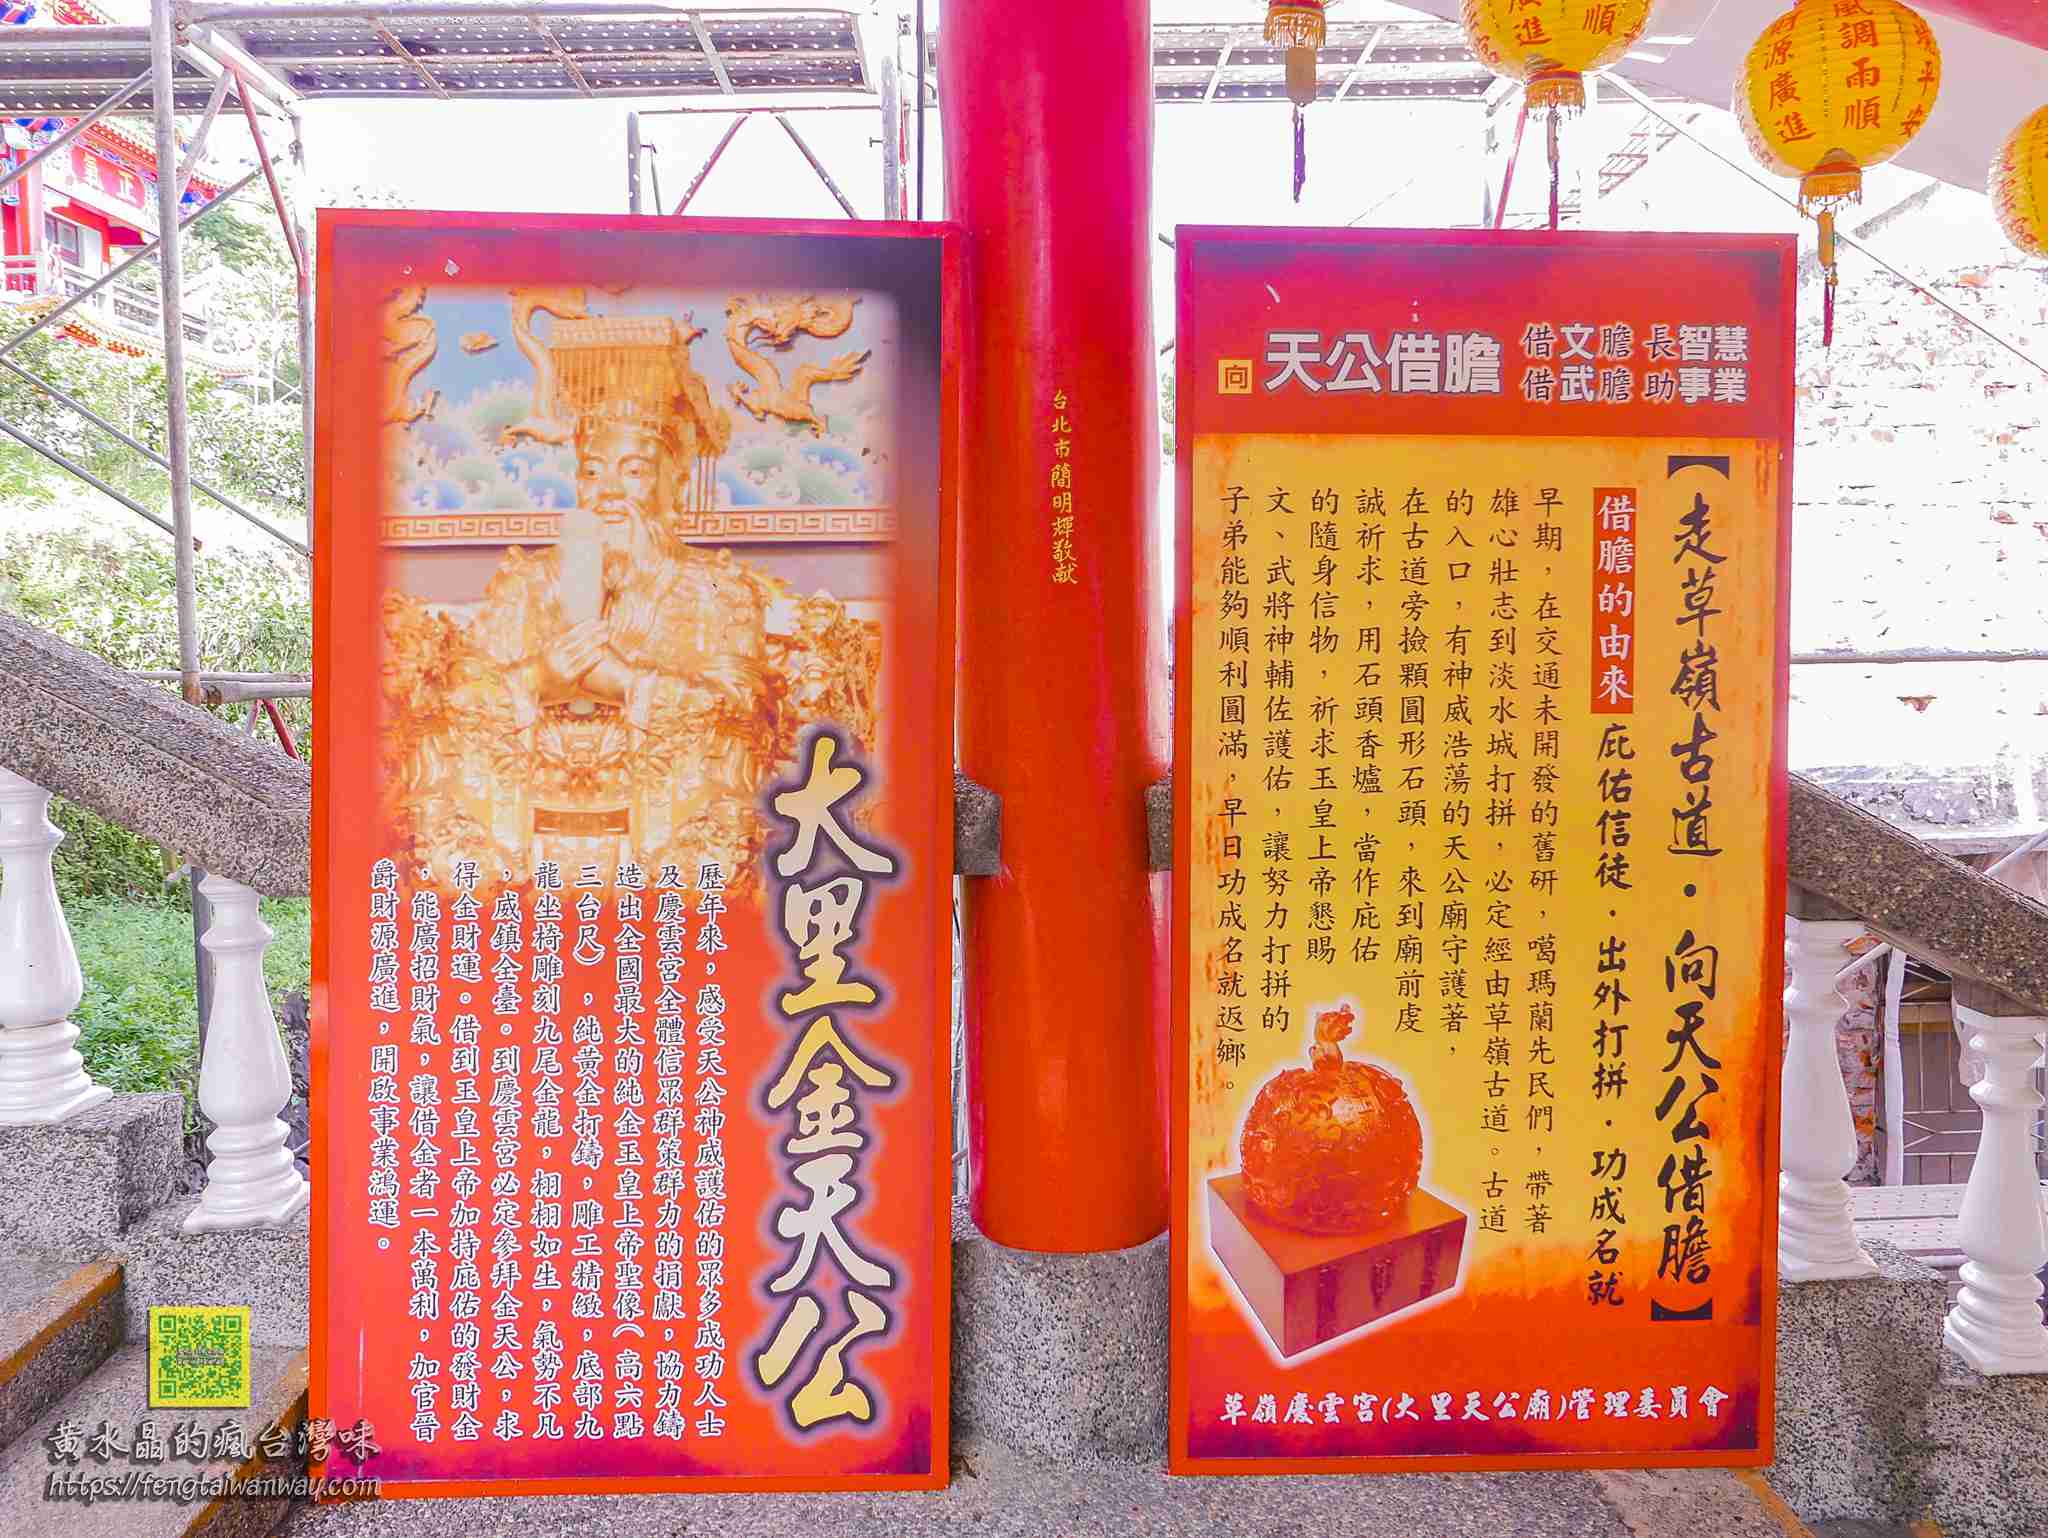 大里金天公
歷年來，感受天公神威護佑的眾多成功人士
及慶雲宮全體信眾群策群力的捐獻，協力鑄
造出全國最大的純金玉皇上帝聖像（高六點
三台尺），純黃金打鑄，雕工精緻，底部九
龍坐椅雕刻九尾金龍，栩栩如生，氣勢不凡
，威鎮全臺。到慶雲宮必定參拜金天公，求
得金財運。借到玉皇上帝加持庇佑的發財金
，能廣招財氣，讓借金者一本萬利，加官晉
爵財源廣進，開啟事業鴻運。
台北市簡明輝敬献
向 天公借膽
借文膽 長智慧
借武膽 助事業
【走草嶺古道·向天公借膽】
借膽的由來 庇佑信徒·出外打拼·功成名就
早期，在交通未開發的舊研，噶瑪蘭先民們，帶著
雄心壯志到淡水城打拼，必定經由草嶺古道。古道
的入口，有神威浩蕩的天公廟守護著，
在古道旁撿顆圓形石頭，來到廟前虔
誠祈求，用石頭香爐，當作庇佑
的隨身信物，祈求玉皇上帝懇賜
文、武將神輔佐護佑，讓努力打拼的
子弟能夠順利圓滿，早日功成名就返鄉。
草嶺慶雲宮(大里天公廟)管理委員會
廣進
順
源廣進
風調雨順
平安
黃水晶的瘋台灣味
https://fengtaiwanway.com